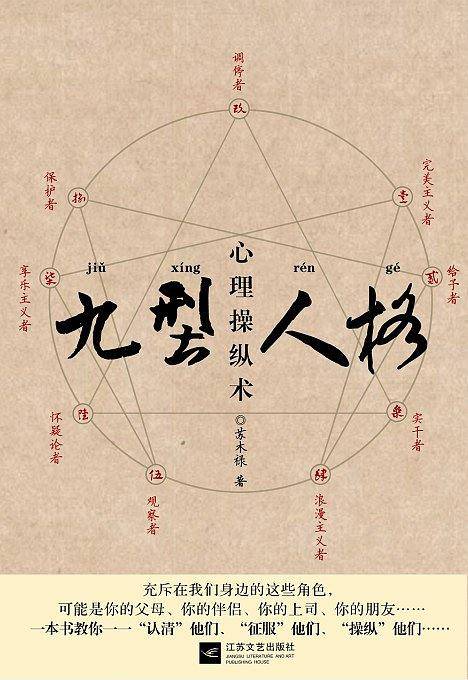 调停者
玖
保护者
捌
完美主义者
壹
享乐主义者
柒
给予者
贰
jiǔ xíng rén gé
九型人格
心理操纵术
◎苏木禄 著
怀疑论者
陆
实干者
叁
观察者
伍
浪漫主义者
肆
充斥在我们身边的这些角色，
可能是你的父母、你的伴侣、你的上司、你的朋友……
一本书教你一一“认清”他们、“征服”他们、“操纵”他们……
江苏文艺出版社
JIANGSU LITERATURE AND ART
PUBLISHING HOUSE